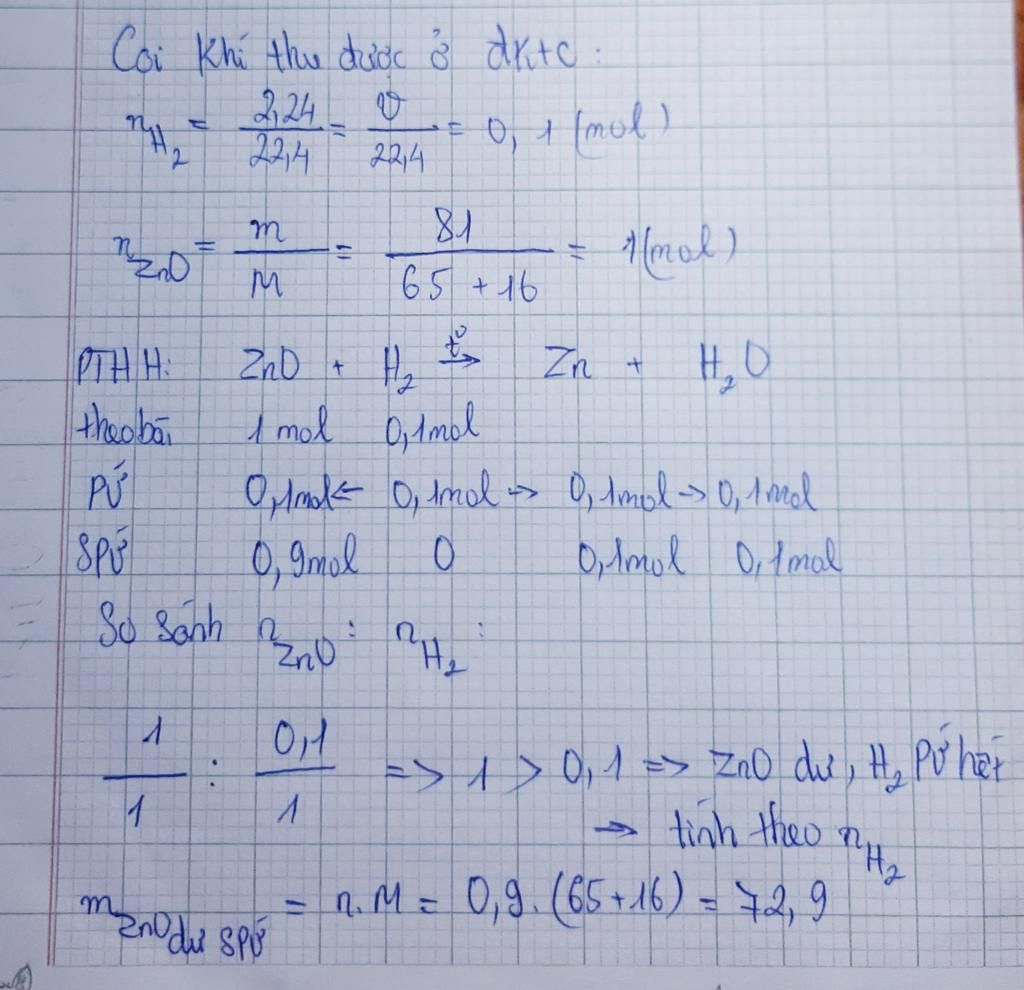 Coi khí thu được ở đktc :
n H₂ = 2,24/22,4 = v/22,4 = 0,1 (mol)
n ZnO = m/M = 81/(65 + 16) = 1 (mol)
PTHH: ZnO + H₂ →(t°) Zn + H₂O
theo bài 1 mol 0,1mol
PỨ 0,1mol ← 0,1mol → 0,1mol → 0,1mol
SPỨ 0,9mol 0 0,1mol 0,1mol
So sánh n ZnO : n H₂ :
1/1 : 0,1/1 => 1 > 0,1 => ZnO dư, H₂ PỨ hết
→ tính theo n H₂
m ZnO dư SPỨ = n.M = 0,9.(65+16) = 72,9